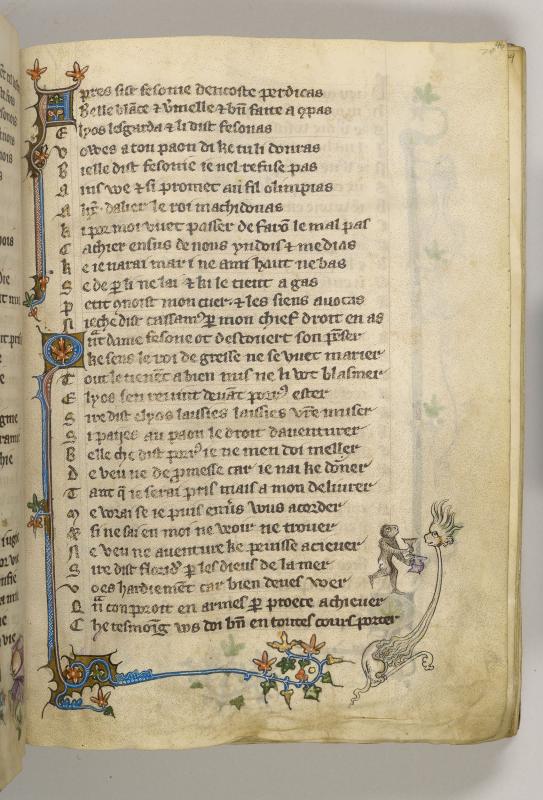 Apres sist fesonie dencoste perdicas
Belle blãce & v'melle & bñ faite a ꝯpas
Elyos lesgarda & li dist fesonas
Vowes a ton paon di ke tu li donras
Bielle dist fesonie ie nel refuse pas
Ains we & si promet au fil olimpias
dalier le roi machidonas
ki por moi vuet passer de farõ le mal pas
Cachier ensus de nous yndois & medias
ke ie narai mari ne ami haut ne bas
Se de ꝑ li ne lai & ki le tient a gas
Petit ꝯnoist mon cuer & les siens auocas
Nieche dist cassamꝰ ꝑ mon chief droit en as
dame fesone ot descouert son pẽser
ke sens le roi de gresse ne se vuet marier
Tout le tienẽt a bien nuls ne li vot blasmer
Elyos sen reuint deuãt porrꝰ ester
Sire dist elyos laissies laissies vr̃e muser
Si paiies au paon le droit dauenturer
Belle che dist porrꝰ ie ne men doi meller
De veu ne de ꝓmesse car ie nai ke dõner
Tant q̃ ie serai pris mais a mon deliurer
Me vorai se ie puis enũs wus acorder
& si ne sai en moi ne veoir ne trouer
Ne veu ne auenture ke peuisse acieuer
Sire dist floridꝰ ꝑ les dieus de la mer
Voes hardiemẽt car bien deues voer
Qñ con porroit en armes ꝑ proece achieuer
Che tesmoing ws doi bñ en toutes cours porter